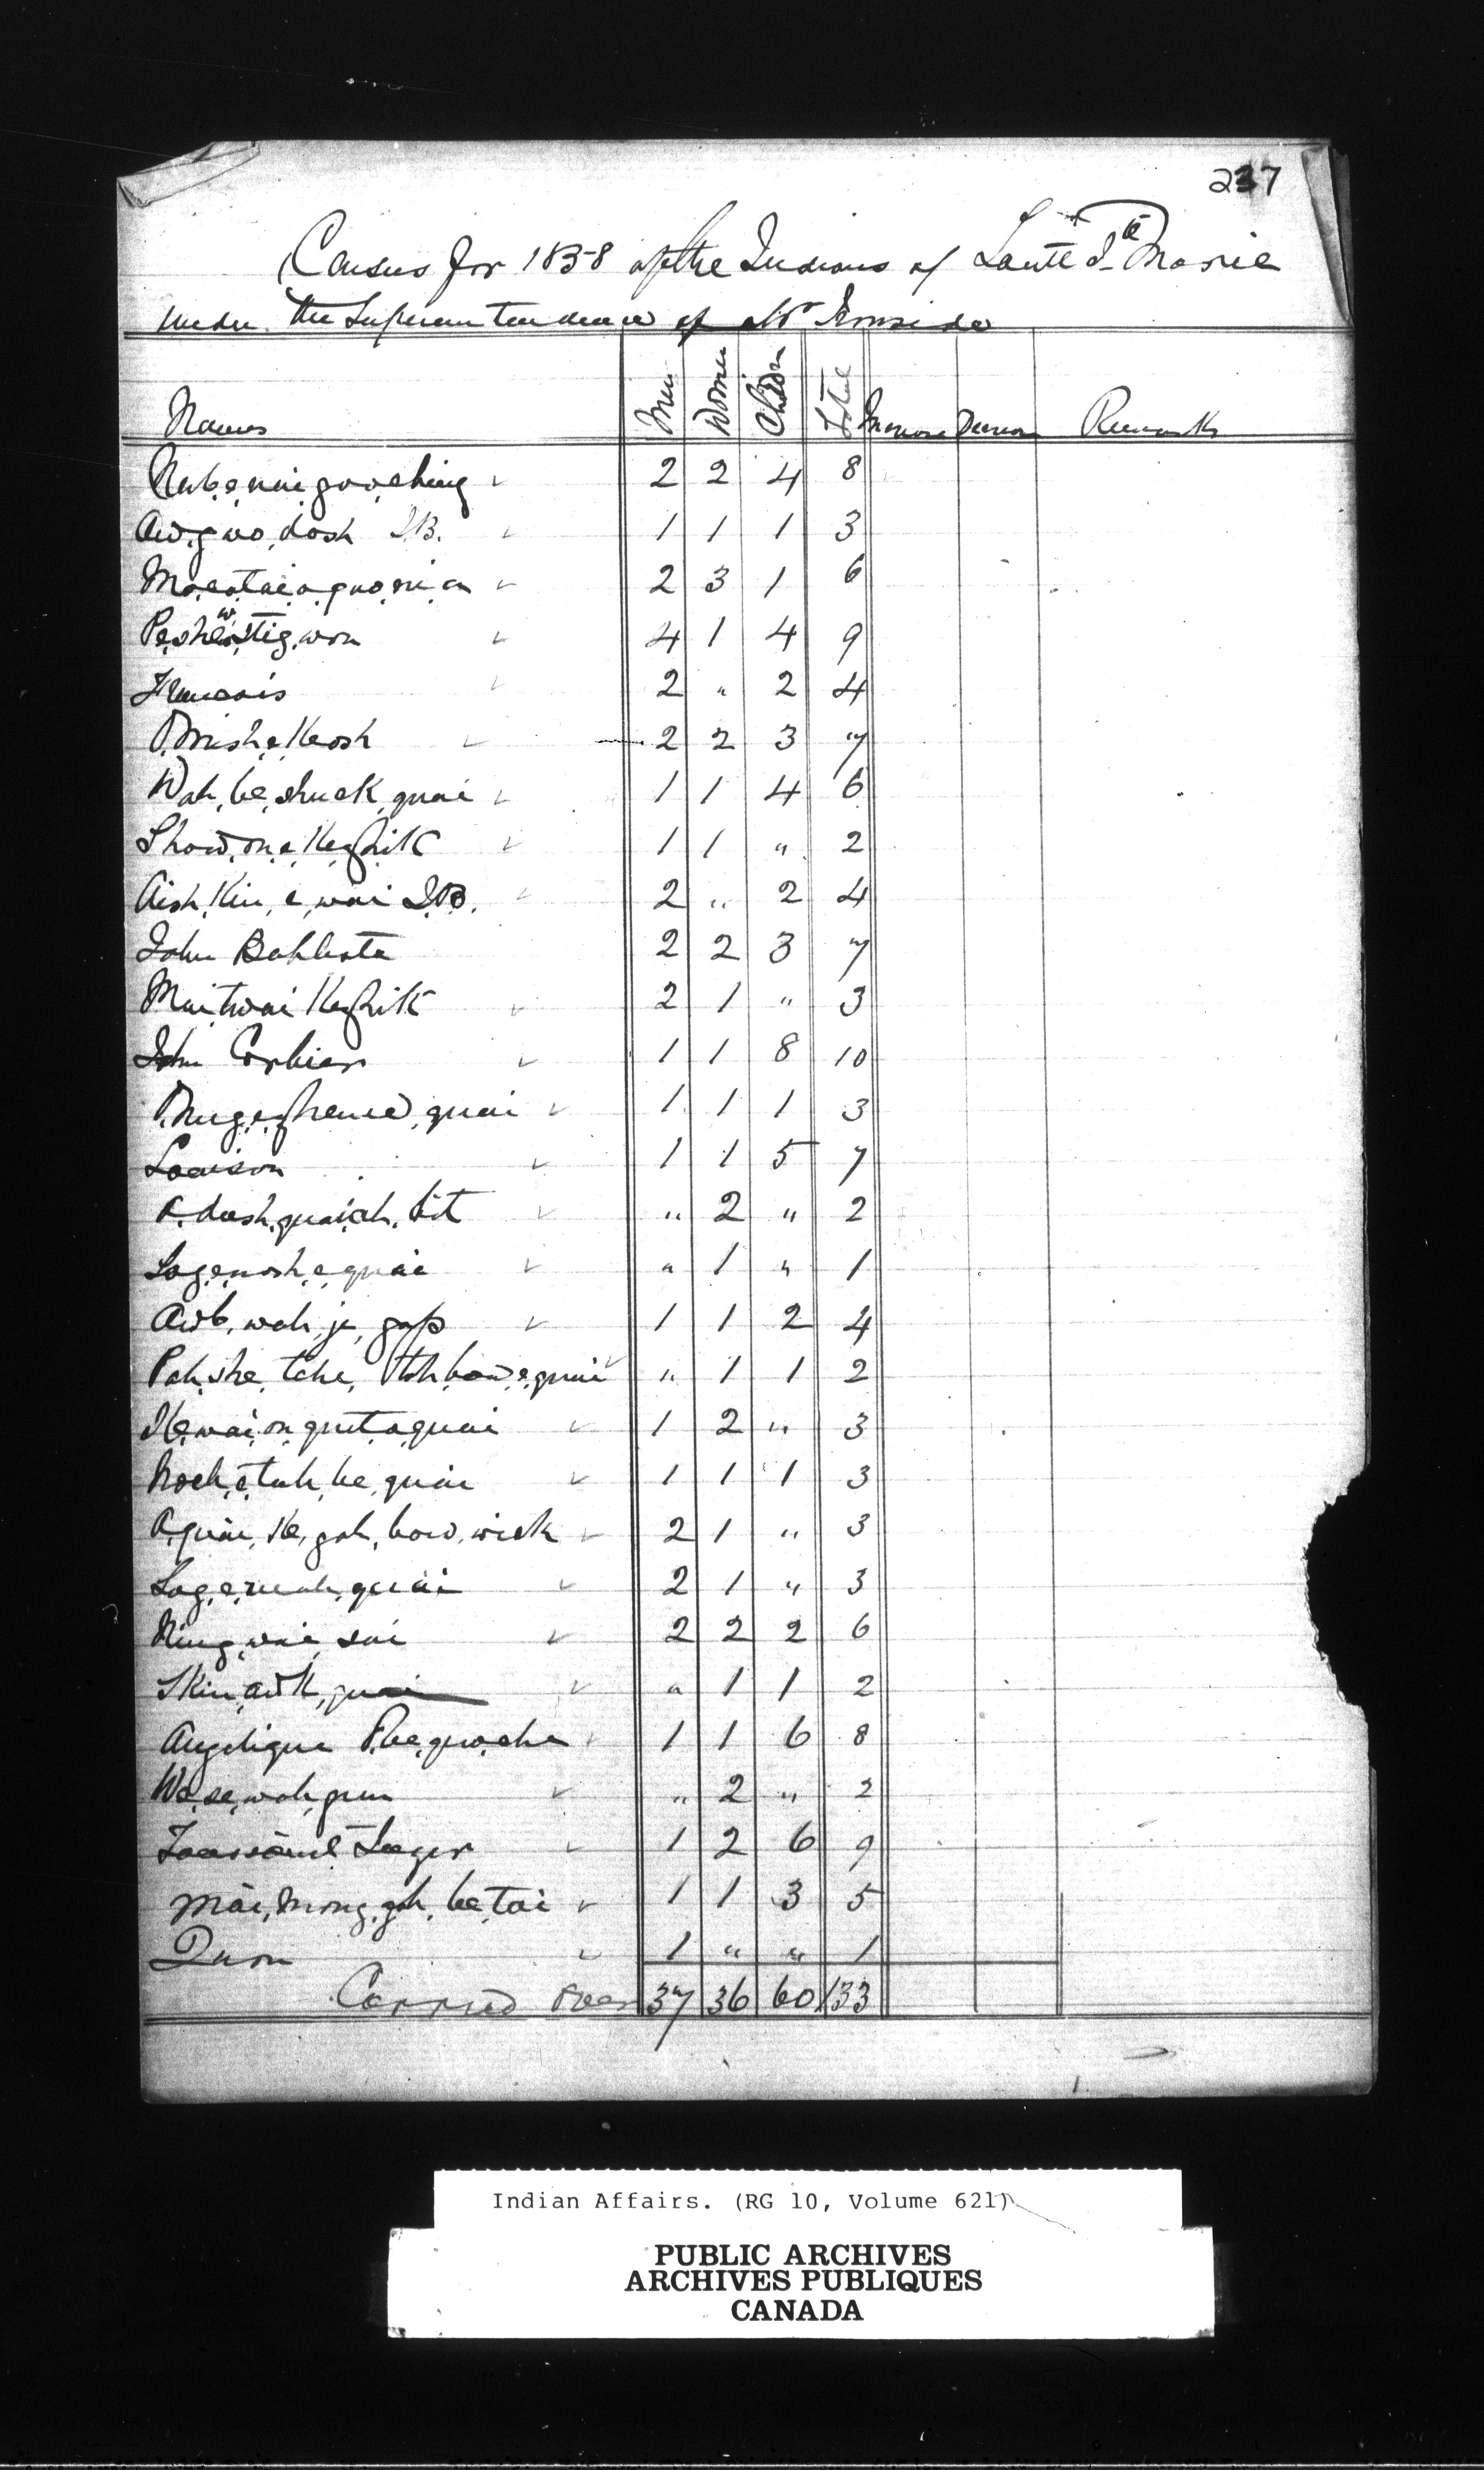 237
Census for 1858 of the Indians of Saute Ste Marie
under the Superintendence of Mr Ironside
Names Men Women Childn Total Increase Decrease Remarks
Nub,e,nai,goo,ching 2 2 4 8
Aw,g,wo,dosh J.B. 1 1 1 3
2 3 1 6
4 1 4 9
Francois 2 " 2 4
O,mish,e,Kosh 2 2 3 7
Wah,be,shuck,quai 1 1 4 6
Show,on,e,Keghik 1 1 " 2
Aish,Kin,e,wai J.B. 2 " 2 4
John Babtiste 2 2 3 7
Mai,twai Keghik 2 1 " 3
John Corbier 1 1 8 10
1 1 1 3
Louison 1 1 5 7
O,dush,quai,ah,bit " 2 " 2
Sag,e,nosh,e,quai " 1 " 1
Awb,wah,je,gap 1 1 2 4
Pah,she,tche, tah,bow,e,quai " 1 1 2
Ke,wai,on,qut,o,quai 1 2 " 3
Noch,e,tah,be,quai 1 1 1 3
O,quai,Ke,gah,bow,wick 2 1 " 3
Sag,e,mah,quai 2 1 " 3
Ning,wai,sai 2 2 2 6
Skin,awk,quai " 1 1 2
Angelique 1 1 6 8
We,se,wah,gun " 2 " 2
Toussaint Leger 1 2 6 9
Mai,mong,gah,be,tai 1 1 3 5
1 " " 1
Carried Over 37 36 60 133
Indian Affairs. (RG 10, Volume 621)
PUBLIC ARCHIVES
ARCHIVES PUBLIQUES
CANADA